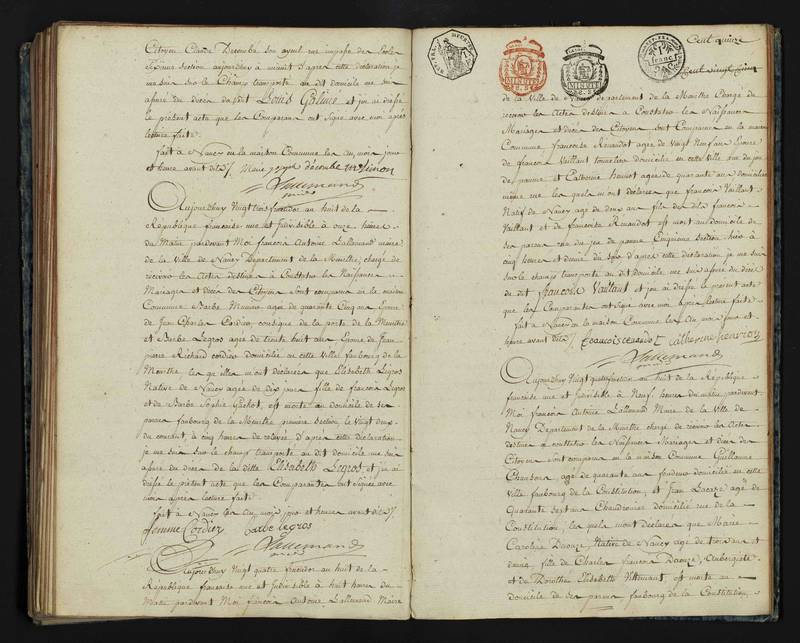 Citoyen Claude Decombe son ayeul rue impasse des Ecoles
Septieme section aujourdhuy a minuit d'apres cette déclaration je
me suis sur le Champ transporté au dit domicile me suis
assuré du décès du dit Louis Galinet et j'en ai dressé
le présent acte que les Comparans ont signé avec moi après
lecture faite
fait à Nancy en la maison Commune les An, mois, jour
et heure avant dits
Lallemand
maire
Aujourdhuy Vingt trois fructidor an huit de la
République françoise une et Indivisible à onze heures
du Matin pardevant Moi françois Antoine Lallemand maire
de la Ville de Nancy Departement de la Meurthe, chargé de
recevoir les Actes destinés à Constater les Naissances
Mariages et décès des Citoyens sont comparus en la maison
Commune Barbe Munier agée de quarante Cinq ans Epouse
de Jean Charles Cordier consigne de la porte de la Meurthe
et Barbe Legros agée de trente huit ans Epouse de Jean
pierre Richard cordier domiciliés en cette Ville faubourg de la
Meurthe les quelles mont déclarées que Elisabeth Legros
Native de Nancy agée de dix jours fille de françois Legros
et de Barbe Sophie Gachot, est morte au domicile de ses
pères faubourg de la Meurthe premiere section, le Vingt deux
du courant, à cinq heures de relevée. D'apres cette déclaration
je me suis sur le champ transporté au dit domicile me suis
assuré du décès de la ditte Elisabeth Legros et j'en ai
dressé le présent acte que les Comparantes ont signées avec
moi après lecture faite
fait à Nancy les An, mois, jour et heures avant dits
femme Cordier barbe legros
Lallemand
maire
Aujourdhuy Vingt quatre fructidor an huit de la
République francoise une et Indivisible à huit heures du
Matin pardevant Moi françois Antoine Lallemand Maire
Cent quinze
Cent vingt cinq
de la Ville de Nancy departement de la Meurthe Chargé de
recevoir les Actes destinés a Constater les Naissances
Mariages et décès des Citoyens sont Comparus en la maison
Commune francoise Renaudot agée de Vingt Neuf ans Epouse
de françois Vaillant tonnelier domicilié en cette Ville rue du jeu
de paume et Catherine henriot agée de quarante ans domiciliée
même rue les quels mont déclarées que francois Vaillant
Natif de Nancy agé de deux ans fils des dits francois
Vaillant et de francoise Renaudot est mort au domicile de
ses parens rue du jeu de paume Cinquieme section hier à
cinq heures et demie du soir d'apres cette déclaration je me suis
sur le champ transporté au dit domicile me suis assuré du décès
du dit francois Vaillant et j'en ai dressé le présent acte
que les Comparantes ont signé avec moi après lecture faite
fait à Nancy en la maison Commune les An, mois, jour et
heure avant dits catherine henrion
Lallemand
maire
Aujourdhuy Vingt quatre fructidor an huit de la République
francoise une et indivisible à Neuf heures du matin pardevant
Moi francois Antoine Lallemand Maire de la Ville de
Nancy Departement de la Meurthe chargé de recevoir les Actes
destinés à constater les Naissances Mariages et décès des
Citoyens sont comparus en la maison Commune Guillaume
Chanson agé de quarante ans fondeur domicilié en cette
Ville faubourg de la Constitution, et Jean agé de
Quarante sept ans Chaudronnier domicilié rue de la
Constitution, les quels mont déclarés que Marie
Caroline Native de Nancy agée de trois ans et
demie, fille de Charles françois Aubergiste
et de Dorothée Elisabeth est morte au
domicile de ses parens faubourg de la Constitution,